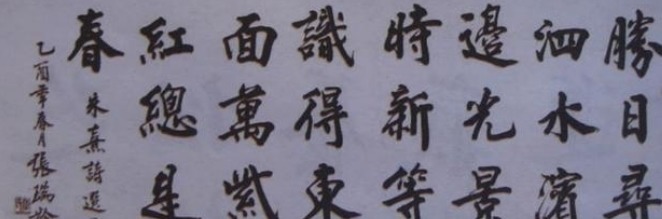 勝日尋
泗水濱
邊光景
時新等
識得東
面萬紫
紅總是
春
朱熹詩選
乙酉年春月張瑞齡